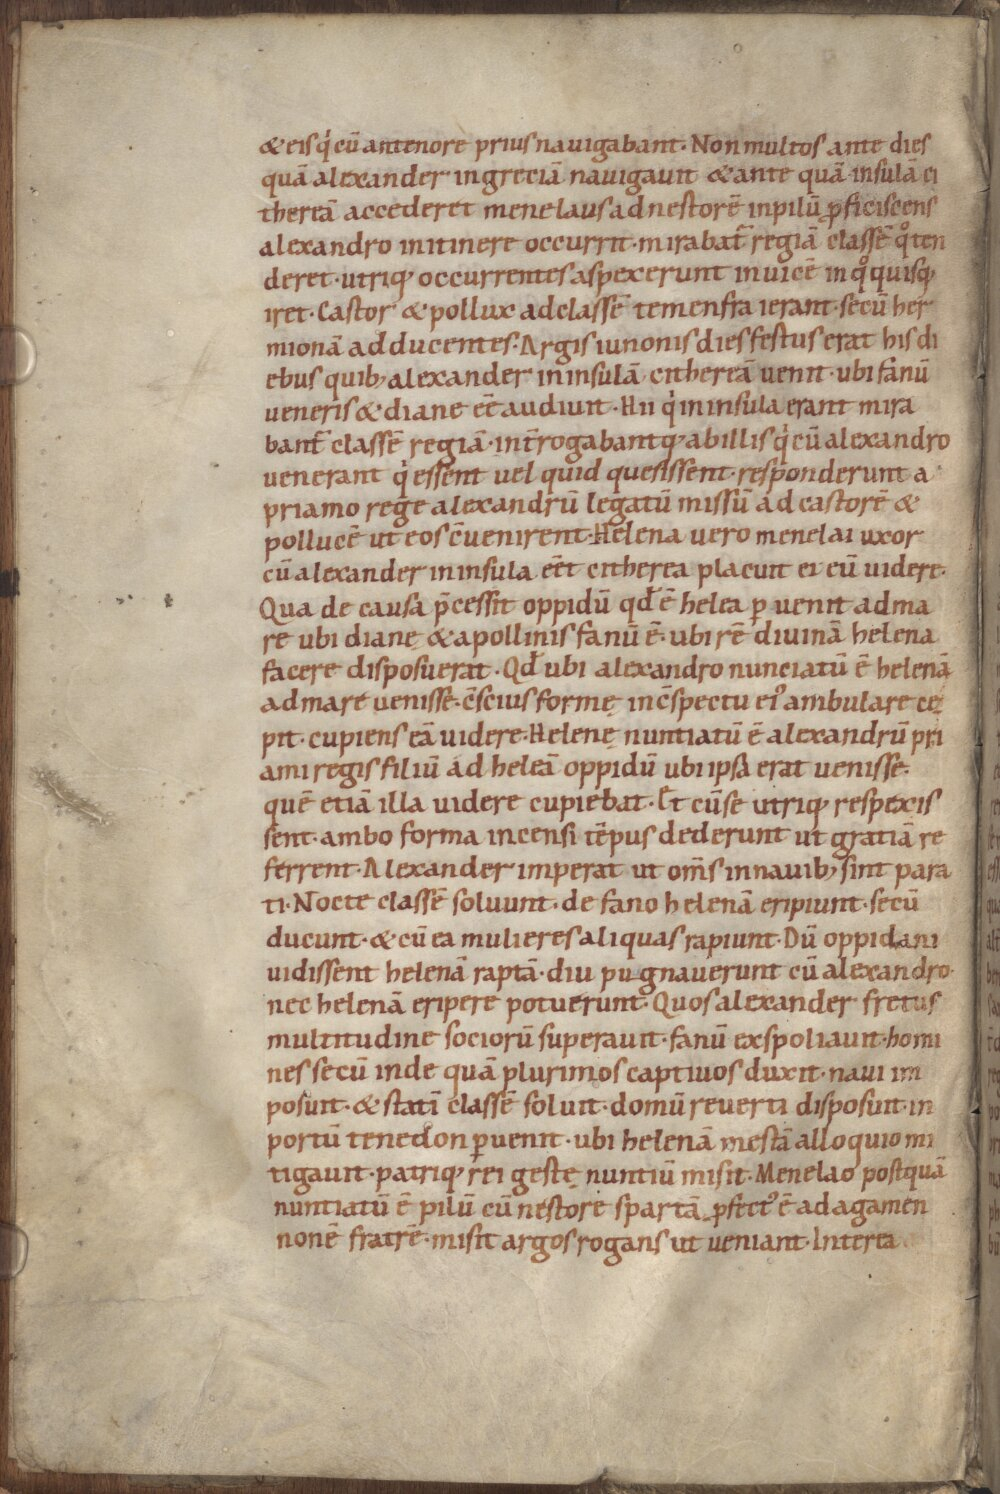 & eis q cū antenore prius nauigabant· Non multos ante dies
quā alexander in greciā nauigauit & ante quā insulā ci
thereā accederet menelaus ad nestorē in pilū ꝓficiscens
alexandro in itinere occurrit· mirabat̄ regiā classē qͦ ten
deret· utriq; occurrentes aspexerunt inuicē in qͦ quisq;
iret· Castor & pollux ad classē temenfra ierant· secū her
mionā adducentes· Argis iunonis dies festus erat his di
ebus quib; alexander in insulā cithereā uenit· ubi fanū
ueneris & diane eē audiuit· Hii qͥ in insula erant mira
bant̄ classē regiā· int̄rogabantq; ab illis qͥ cū alexandro
uenerant qͥ essent uel quid quesissent· responderunt a
priamo rege alexandrū legatū missū ad castorē &
pollucē ut eos c̄uenirent· Helena uero menelai uxor
cū alexander in insula eēt citherea placuit ei eū uidere·
Qua de causa p̄cessit oppidū qđ ē helea ꝑuenit ad ma
re ubi dianę & apollinis fanū ē· ubi rē diuinā helena
facere disposuerat· Qđ ubi alexandro nunciatū ē helenā
ad mare uenisse· c̄scius formę in c̄spectu ei᾽ ambulare cę
pit· cupiens eā uidere· Helenę nuntiatū ē alexandrū pri
ami regis filiū ad heleā oppidū ubi ipsa erat uenisse·
quē etiā illa uidere cupiebat· Et cū se utriq; respexis
sent· ambo forma incensi tēpus dederunt ut gratiā re
ferrent· Alexander imperat ut om̄s in nauib; sint para
ti· Nocte classē soluunt· de fano helenā eripiunt· secū
ducunt· & cū ea mulieres aliquas rapiunt· Dū oppidani
uidissent helenā raptā· diu pugnauerunt cū alexandro·
nec helenā eripere potuerunt· Quos alexander fretus
multitudine sociorū superauit· fanū exspoliauit· homi
nes secū inde quā plurimos captiuos duxit· naui im
posuit· & statī classē soluit· domū reuerti disposuit· in
portū tenedon ꝑuenit· ubi helenā mestā alloquio mi
tigauit· patriq; rei gestę nuntiū misit· Menelao postquā
nuntiatū ē pilū cū nestore spartā ꝓfect᾽ ē ad agamen
nonē fratrē· misit argos rogans ut ueniant· Interea